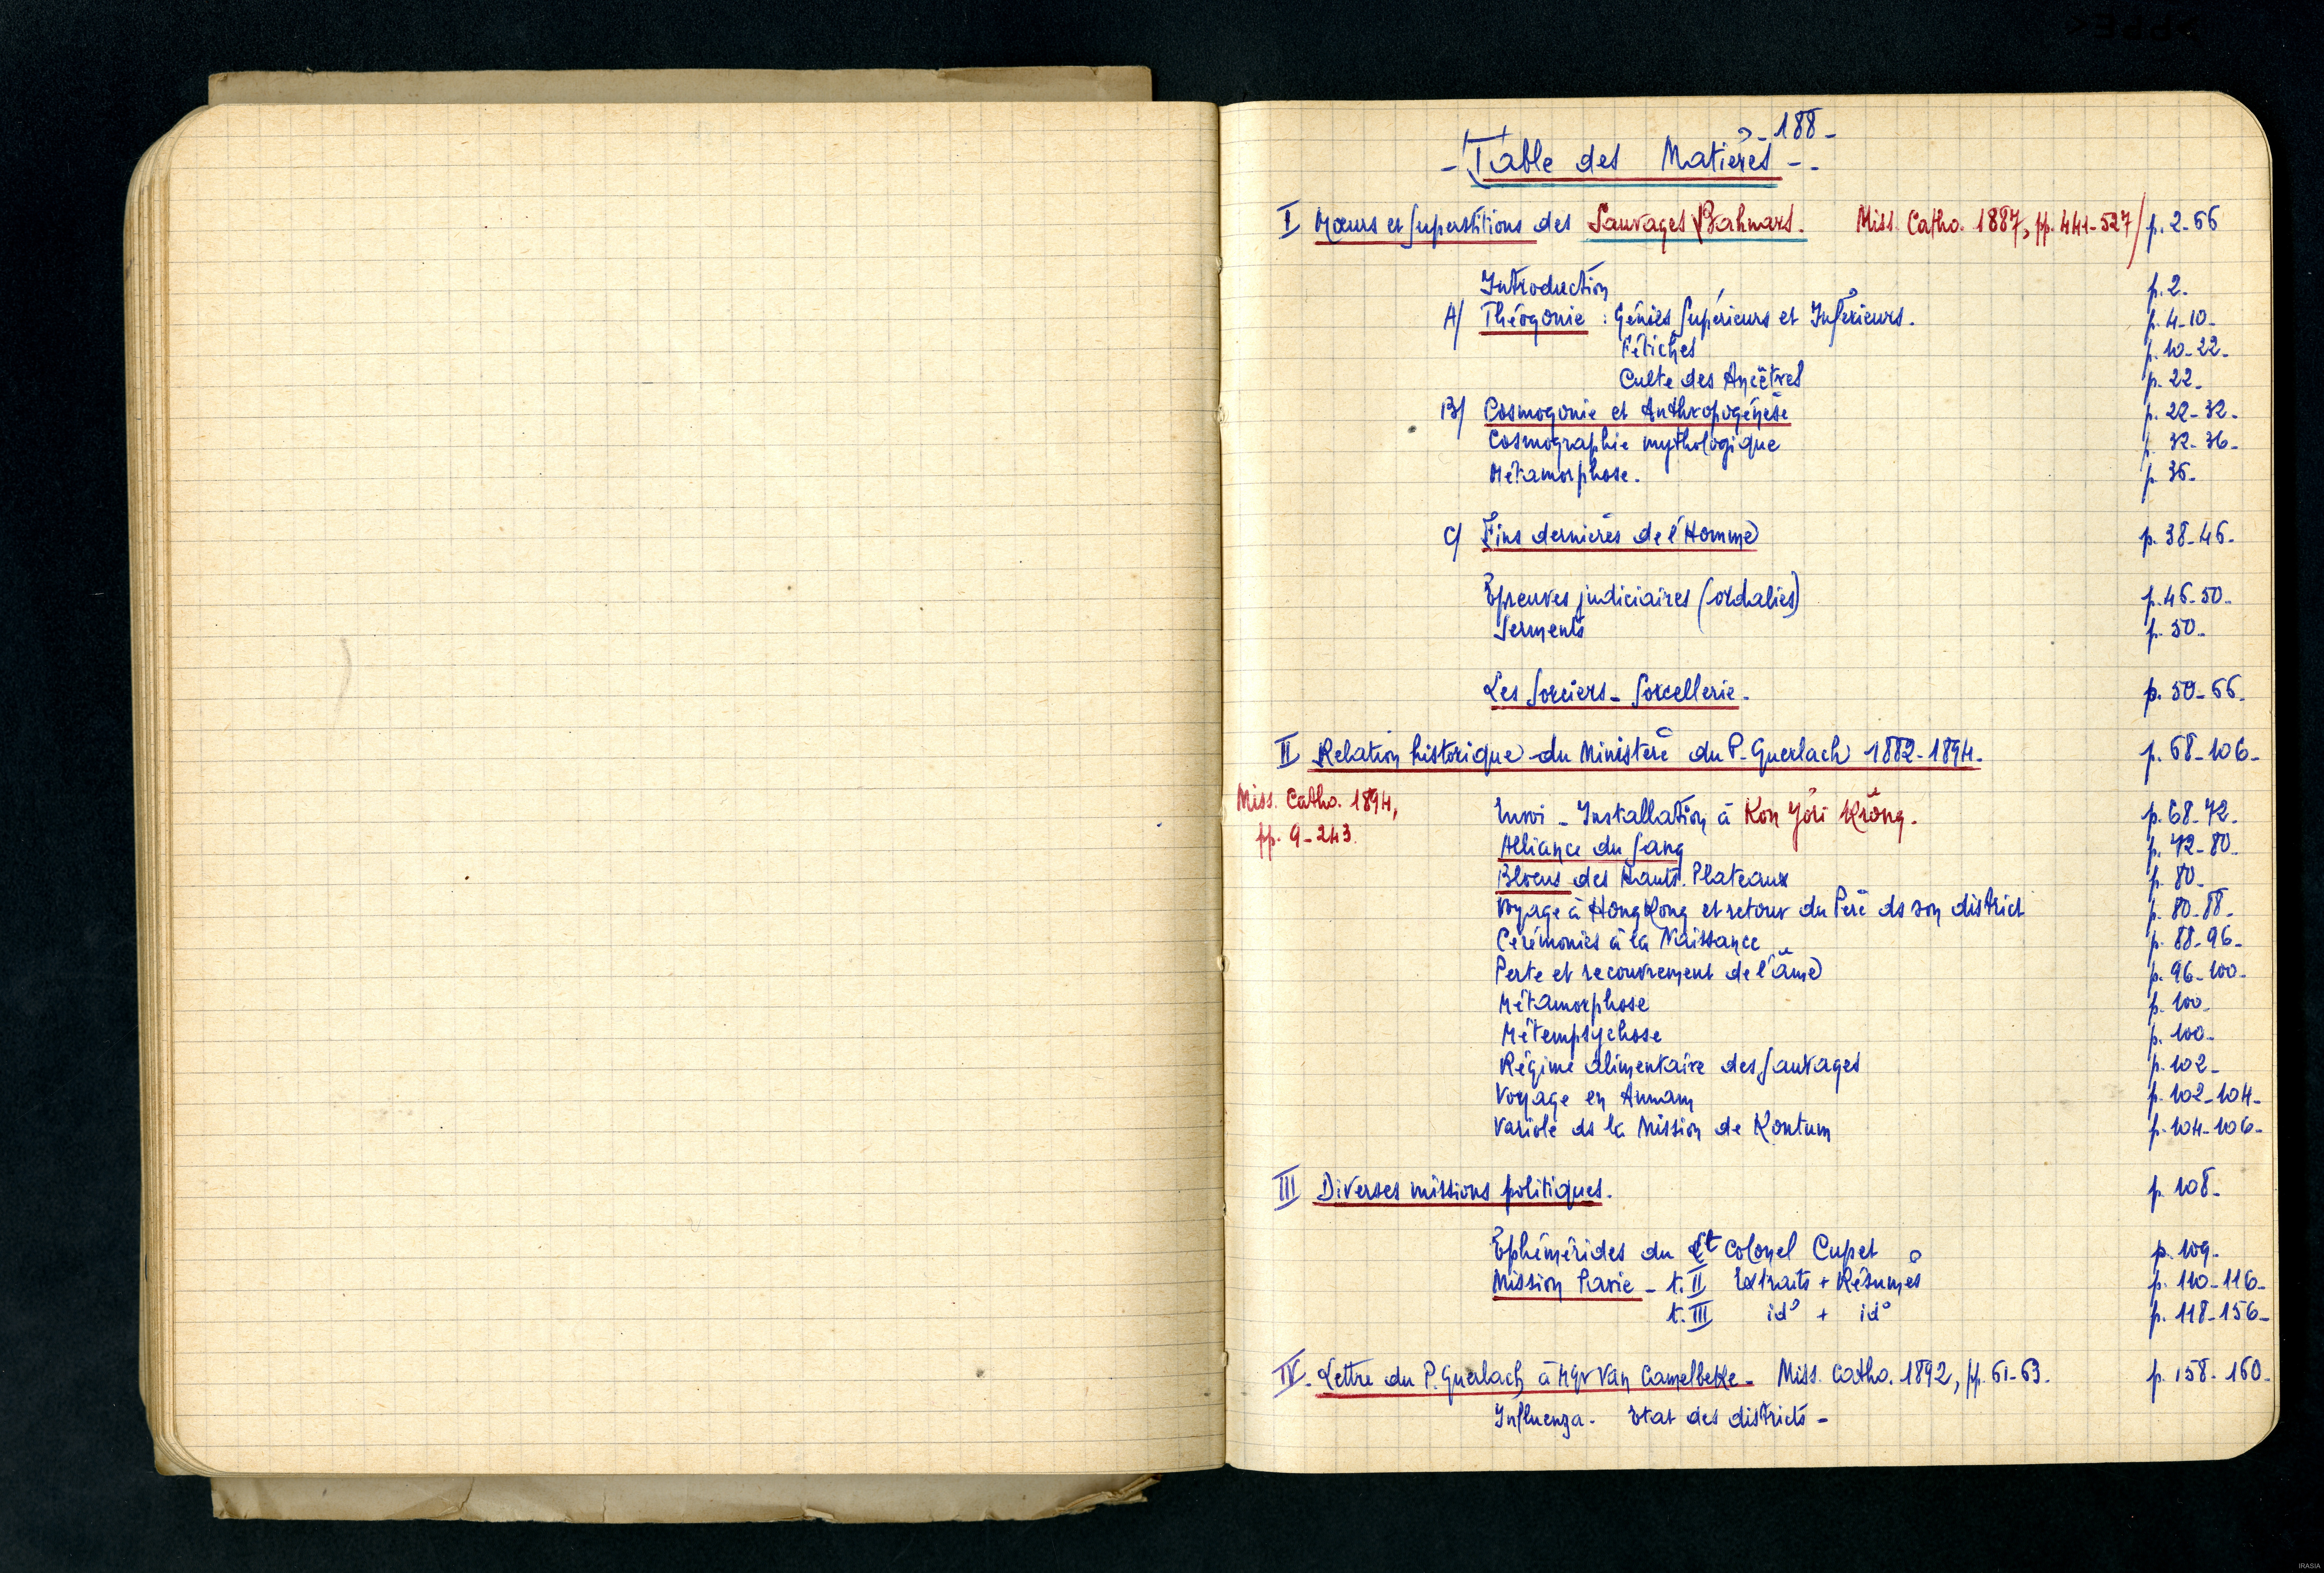 - 188 -
- Table des Matières -
I Mœurs et Superstitions des Sauvages Bahnars. Miss. Catho. 1887, pp. 441-527 / p. 2-66
Introduction p. 2.
A/ Théogonie : Génies Supérieurs et Inférieurs. p. 4-10-
Fétiches p. 10-22-
Culte des Ancêtres p. 22-
B/ Cosmogonie et Anthropogénèse p. 22-32-
Cosmographie mythologique p. 32-36-
Métamorphose. p. 36-
C/ Fins dernières de l'Homme p. 38-46-
Epreuves judiciaires (ordalies) p. 46-50-
Serments p. 50-
Les Sorciers - Sorcellerie. p. 50-66-
II Relation historique du Ministère du P. Guerlach 1882-1894. p. 68-106-
Miss. Catho. 1894, pp. 9-243.
Envoi - Installation à Kon Jơri Krong. p. 68-72-
Alliance du Sang p. 72-80-
Blocus des Hauts-Plateaux p. 80-
Voyage à HongKong et retour du Père ds son district p. 80-88-
Cérémonies à la Naissance p. 88-96-
Perte et recouvrement de l'âme p. 96-100-
Métamorphose p. 100-
Métempsychose p. 100-
Régime alimentaire des Sauvages p. 102-
Voyage en Annam p. 102-104-
Variole ds la Mission de Kontum p. 104-106-
III Diverses missions politiques. p. 108-
Ephémérides du Lt Colonel Cupet p. 109-
Mission Pavie - t. II Extraits + Résumés p. 110-116-
t. III id° + id° p. 118-156-
IV. Lettre du P. Guerlach à Mgr Van Camelbeke - Miss. Catho. 1892, pp. 61-63. p. 158-160-
Influenza. Etat des districts -
IRASIA